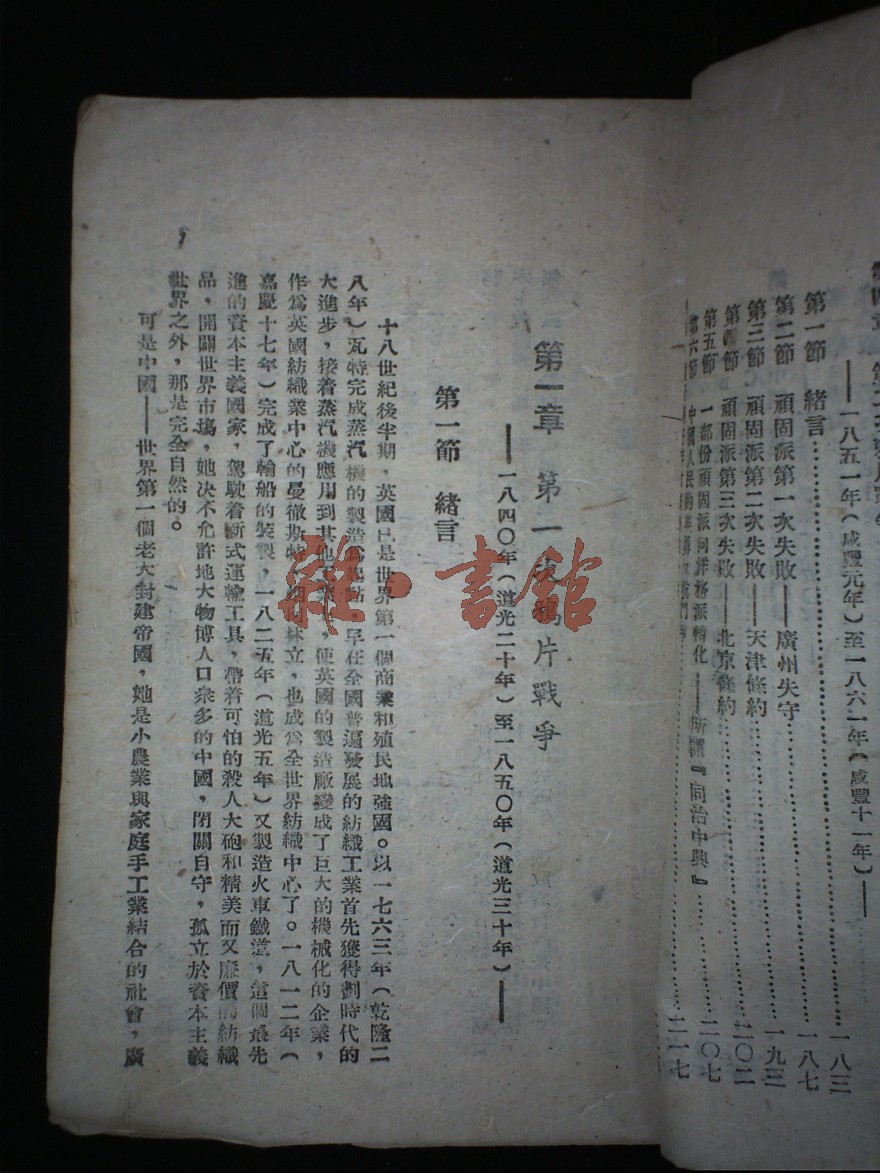 ——一八五一年(咸豐元年)至一八六一年(咸豐十一年)——
第一節 緒言……一八三
第二節 頑固派第一次失敗——廣州失守……一八七
第三節 頑固派第二次失敗——天津條約……一九三
第四節 頑固派第三次失敗——北京條約……二〇二
第五節 一部份頑固派向洋務派轉化——所謂『同治中興』……二〇七
第六節 中國人民的……二一七
第一章 第一次鴉片戰爭
——一八四〇年(道光二十年)至一八五〇年(道光三十年)——
第一節 緒言
十八世紀後半期,英國已是世界第一個商業和殖民地強國。以一七六三年(乾隆二
八年)瓦特完成蒸汽機的製造為起點,早在全國普遍發展的紡織工業首先獲得劃時代的
大進步,接着蒸汽機應用到其他工業,使英國的製造廠變成了巨大的機械化的企業,
作為英國紡織業中心的曼徹斯特,烟囱林立,也成為全世界紡織中心了。一八一二年(
嘉慶十七年)完成了輪船的裝製,一八二五年(道光五年)又製造火車鐵道,這個最先
進的資本主義國家,駕駛着新式運輸工具,帶着可怕的殺人大砲和精美而又廉價的紡織
品,開闢世界市場,她決不允許地大物博人口衆多的中國,閉關自守,孤立於資本主義
世界之外,那是完全自然的。
可是中國——世界第一個老大封建帝國,她是小農業與家庭手工業結合的社會,廣
雜·書館